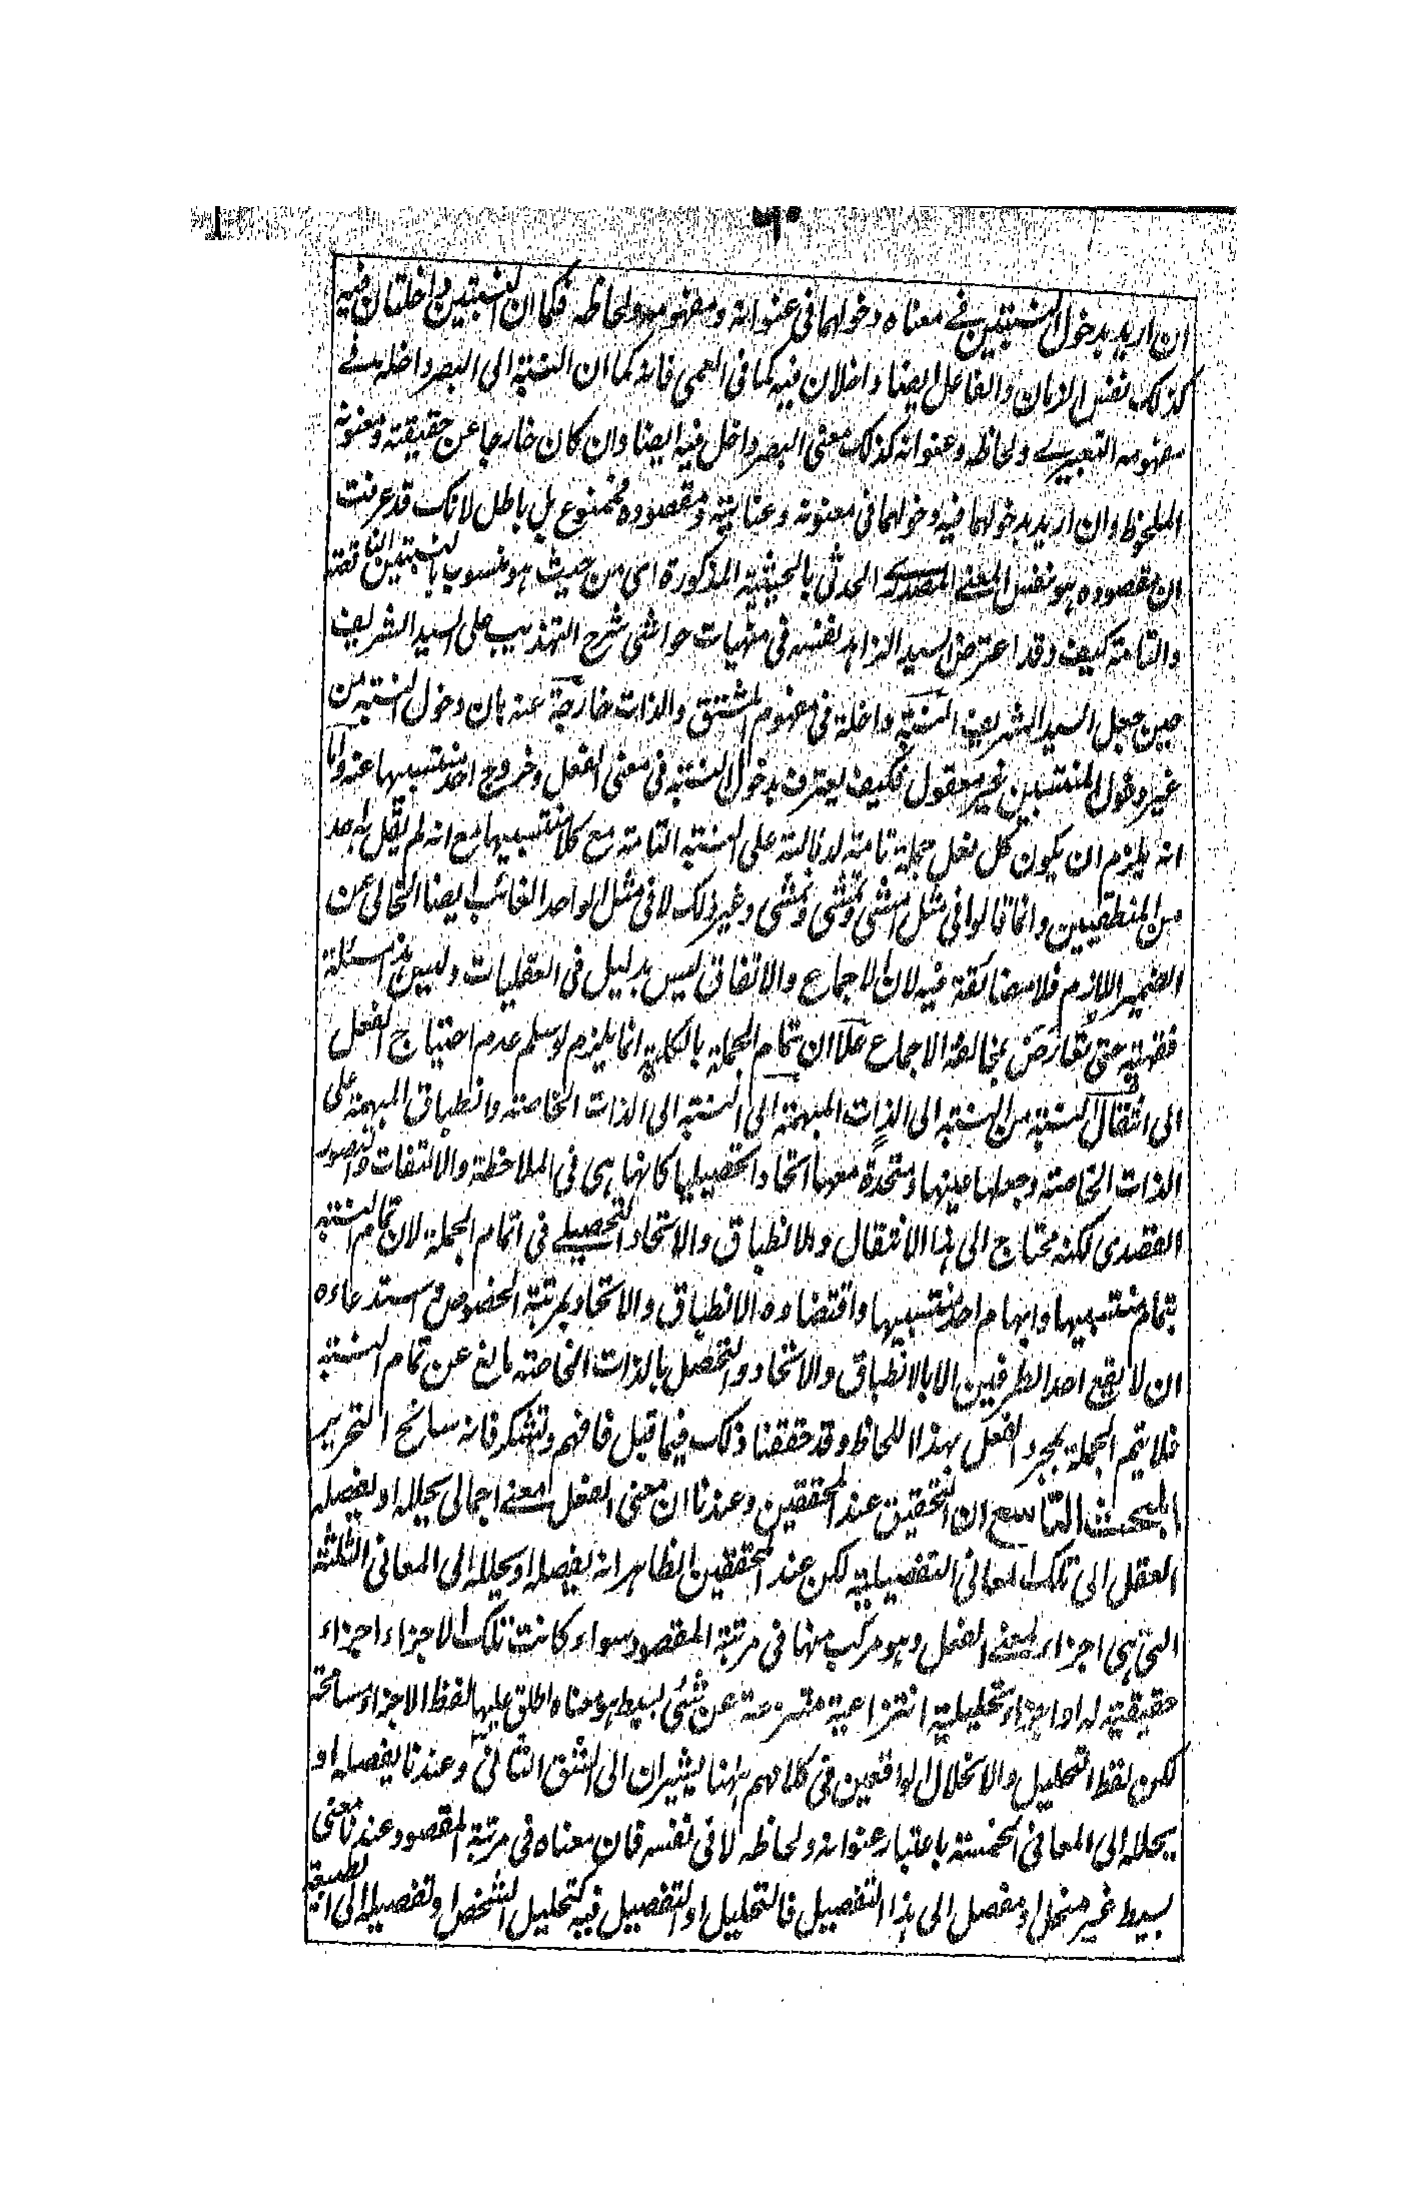 ان اريد بدخول النسبتين في معناه دخولهما في عنوانه ومفهومه ولحاظه فكما ان النسبتين داخلتان فيه
كذلك نفس الزمان والفاعل ايضا داخلان فيه كما في العمى فانه كما ان النسبة الى البصر داخلة في
مفهومه التعبيري ولحاظه وعنوانه كذلك معنى البصر داخل فيه ايضا وان كان خارجا عن حقيقته ومعنونه
الملحوظ وان اريد بدخولهما فيه دخولهما في معنونه وعنايته ومقصوده فممنوع بل باطل لانك قد عرفت
ان مقصوده هو نفس المعنى المصدري الحدثي بالحيثية المذكورة اى من حيث هو منسوب بالنسبتين الناقصة
والتامة كيف وقد اعترض السيد الزاهد نفسه في منهيات حواشي شرح التهذيب على السيد الشريف
حين جعل السيد الشريف النسبة داخلة في مفهوم المشتق والذات خارجة عنه بان دخول النسبة من
غير دخول المنتسبين غير معقول فكيف يعترف بدخول النسبة في معنى الفعل وخروج احد منتسبيها عنه واما
انه يلزم ان يكون كل فعل جملة تامة لدلالته على النسبة التامة مع كلا منتسبيها مع انه لم يقل به احد
من المنطقيين وانما قالوا في مثل امشي وتمشي ونمشي وغير ذلك لا في مثل الواحد الغائب ايضا الخالي عن
الضمير اللازم فلا مضائقة فيه لان الاجماع والاتفاق ليس بدليل في العقليات وليس هذه مسئلة
فقهية حتى تعارض بمخالفة الاجماع علا ان تمام الجملة بالكلية انما يلزم لو سلم عدم احتياج الفعل
الى انتقال النسبة من النسبة الى الذات المبهمة الى النسبة الى الذات الخاصة وانطباق المبهمة على
الذات الخاصة وجعلها عينها ومتحدة معها اتحادا تحصيليا كانها هي في الملاحظة والالتفات والتصور
القصدي لكنه محتاج الى هذا الانتقال والانطباق والاتحاد التحصيلي في اتمام الجملة لان تمام النسبة
بتمام منتسبيها وابهام احد منتسبيها واقتضاءه الانطباق والاتحاد بمرتبة الخصوص واستدعاءه
ان لا يقع احد الطرفين الا بالانطباق والاتحاد والتحصل بالذات الخاصة مانع عن تمام النسبة
فلا يتم الجملة بمجرد الفعل بهذا اللحاظ وقد حققنا ذلك فيما قبل فافهم وتشكر فانه سانح التحرير
المبحث التاسع ان التحقيق عند المحققين وعندنا ان معنى الفعل معنى اجمالي يحلله او يفصله
العقل الى تلك المعاني التفصيلية لكن عند المحققين الظاهر انه يفصله او يحلله الى المعاني الثلثة
التي هي اجزاء لمعنى الفعل وهو مركب منها في مرتبة المقصود سواء كانت تلك الاجزاء اجزاء
حقيقية له او اجزاء تحليلية انتزاعية منتزعة عن شئ بسيط هو معناه اطلق عليها لفظ الاجزاء مسامحة
لكن لفظ التحليل والانحلال الواقعين في كلامهم ههنا يشيران الى الشق الثاني وعندنا يفصله او
يحلله الى المعاني الخمسة باعتبار عنوانه ولحاظه لا في نفسه فان معناه في مرتبة المقصود عندنا معنى
بسيط غير منحل او مفصل الى هذا التفصيل فالتحليل او التفصيل فيه كتحليل الشخص او تفصيله الى